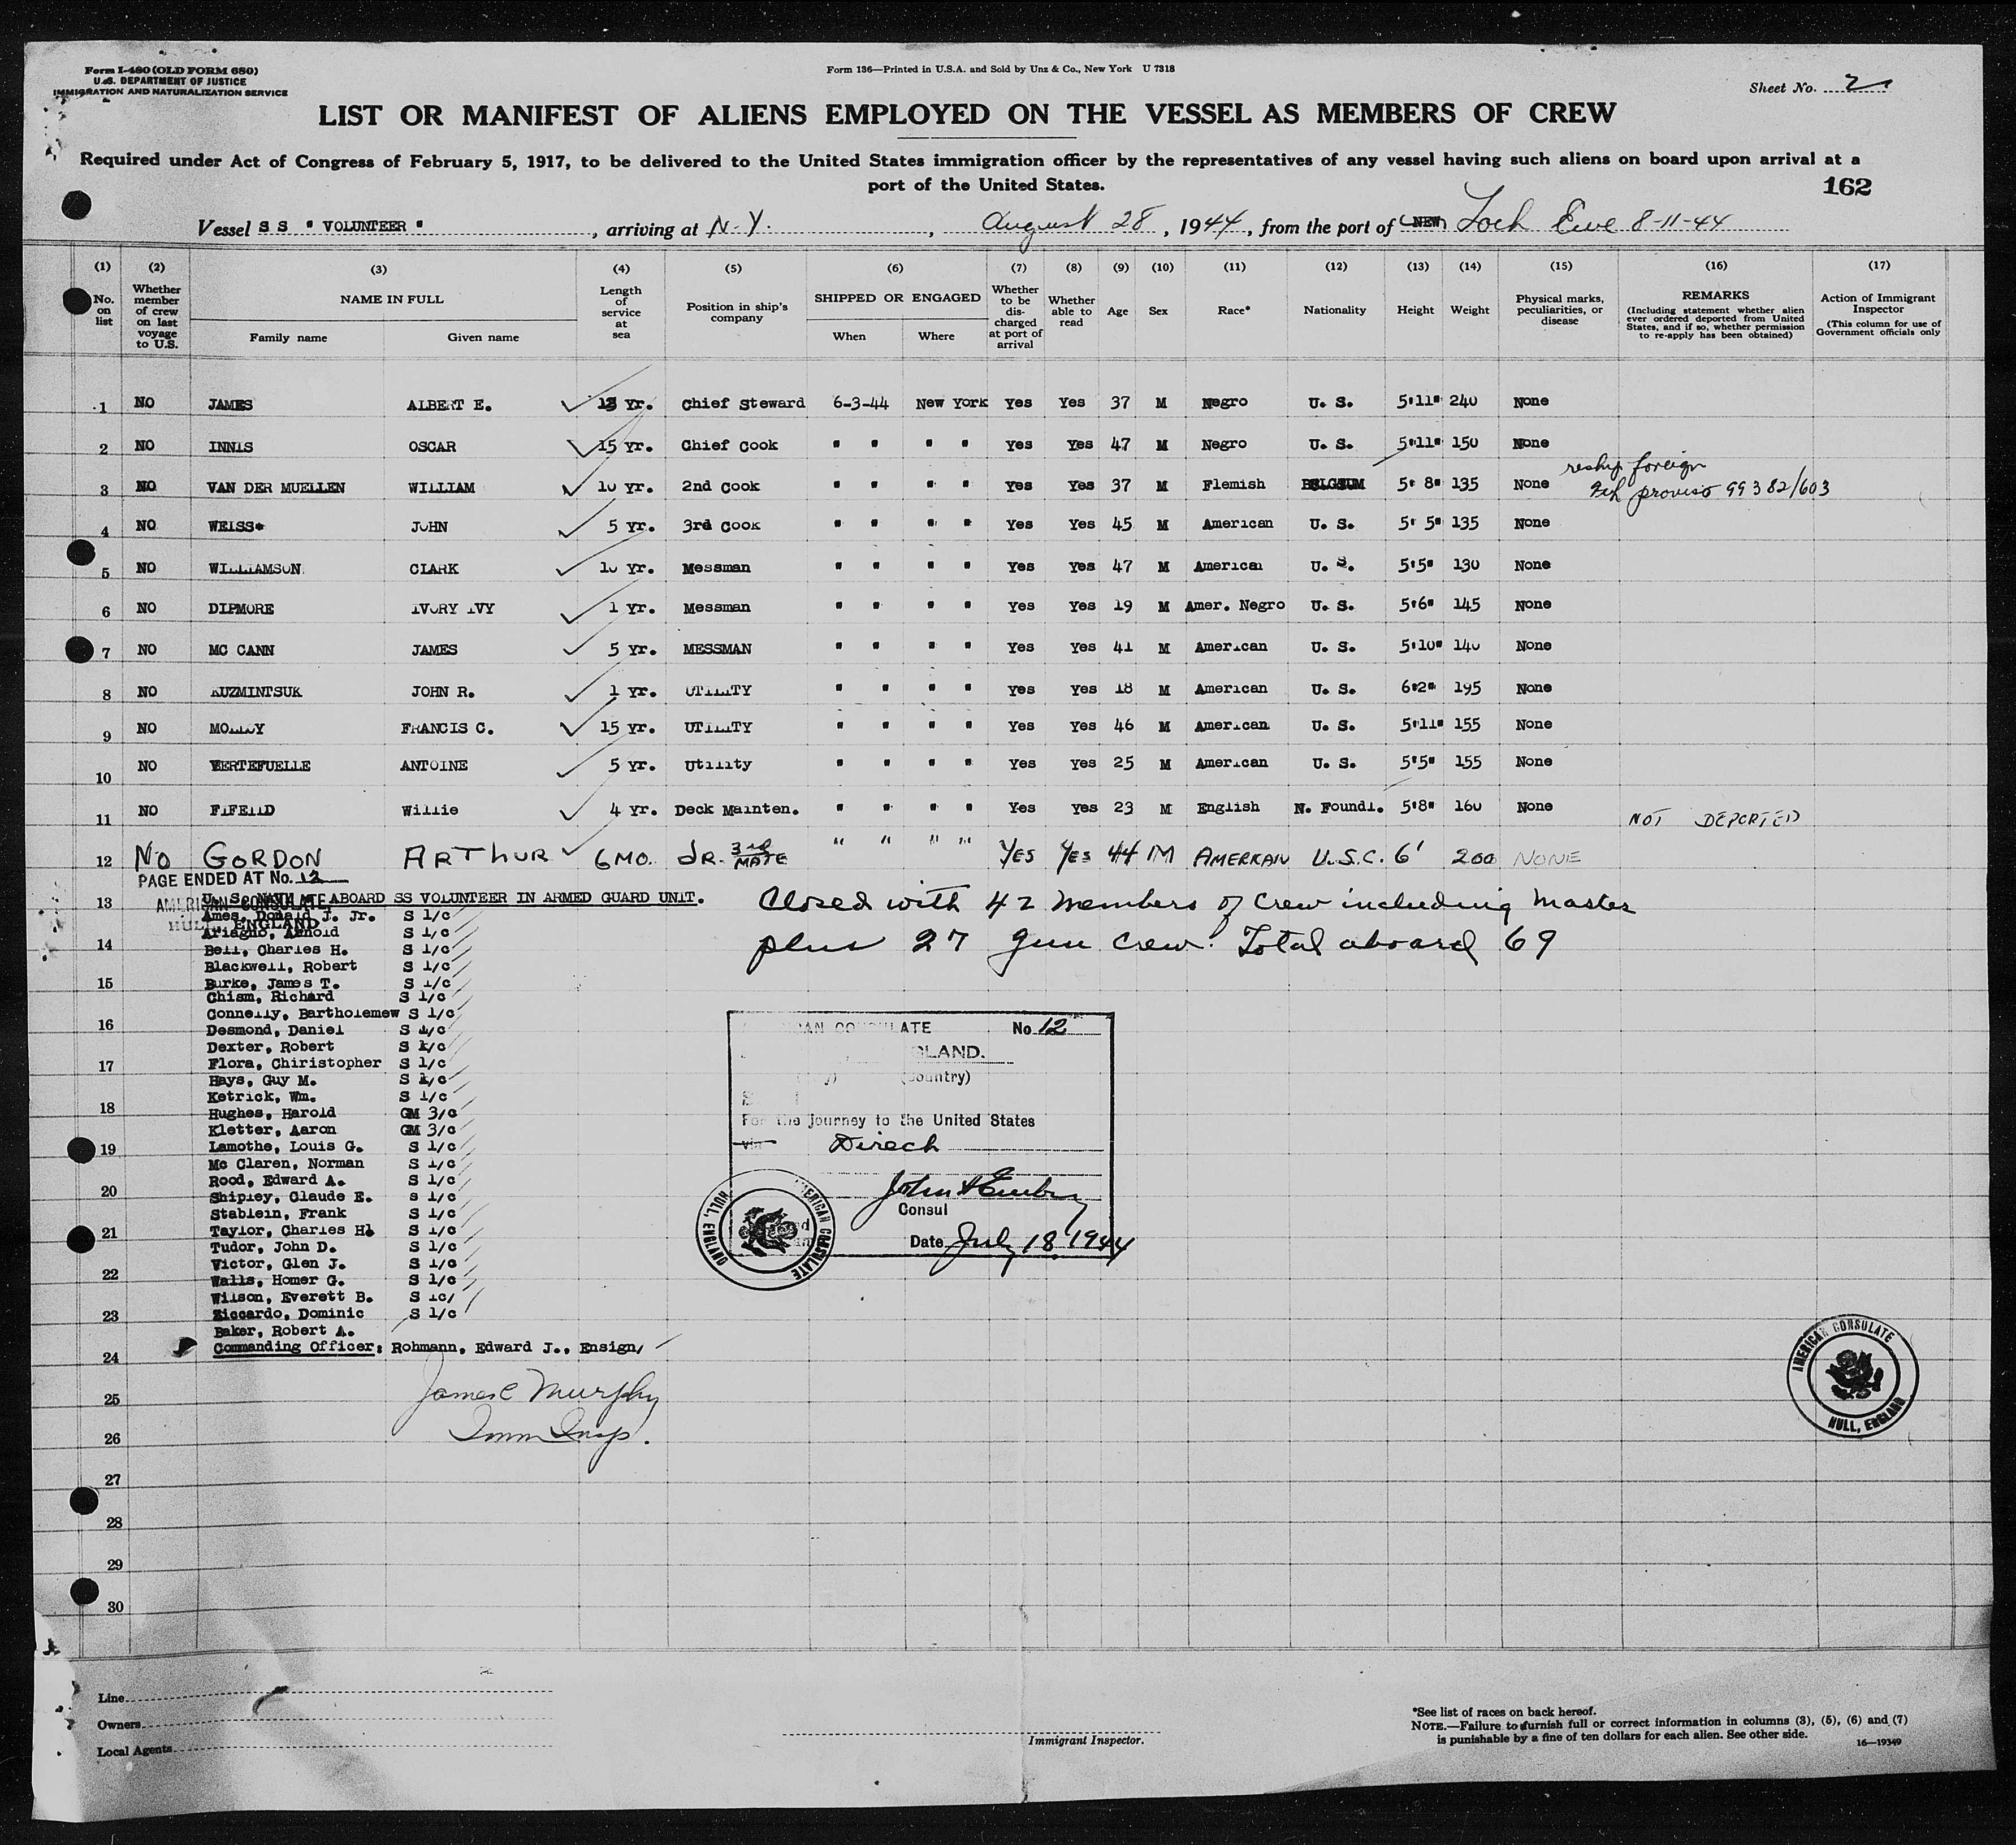 Form I-480 (OLD FORM 680)
U.S. DEPARTMENT OF JUSTICE
IMMIGRATION AND NATURALIZATION SERVICE
Form 136—Printed in U.S.A. and Sold by Unz & Co., New York U 7318
Sheet No. 2
LIST OR MANIFEST OF ALIENS EMPLOYED ON THE VESSEL AS MEMBERS OF CREW
Required under Act of Congress of February 5, 1917, to be delivered to the United States immigration officer by the representatives of any vessel having such aliens on board upon arrival at a
port of the United States.
162
Vessel S S " VOLUNTEER ", arriving at N.Y., August 28, 1944, from the port of Loch Ewe 8-11-44
(1) (2) (3) (4) (5) (6) (7) (8) (9) (10) (11) (12) (13) (14) (15) (16) (17)
No. on list
Whether member of crew on last voyage to U.S.
NAME IN FULL
Family name Given name
Length of service at sea
Position in ship's company
SHIPPED OR ENGAGED
When Where
Whether to be discharged at port of arrival
Whether able to read
Age
Sex
Race*
Nationality
Height
Weight
Physical marks, peculiarities, or disease
REMARKS
(Including statement whether alien ever ordered deported from United States, and if so, whether permission to re-apply has been obtained)
Action of Immigrant Inspector
(This column for use of Government officials only
1 NO JAMES ALBERT E. 13 Yr. Chief Steward 6-3-44 New York Yes Yes 37 M Negro U. S. 5'11" 240 None
2 NO INNIS OSCAR 15 Yr. Chief Cook " " " " Yes Yes 47 M Negro U. S. 5'11" 150 None
reship foreign
3 NO VAN DER MUELLEN WILLIAM 10 Yr. 2nd Cook " " " " Yes Yes 37 M Flemish BELGIUM 5' 8" 135 None 9th proviso 99382/603
4 NO WEISS* JOHN 5 Yr. 3rd Cook " " " " Yes Yes 45 M American U. S. 5' 5" 135 None
5 NO WILLIAMSON CLARK 10 Yr. Messman " " " " Yes Yes 47 M American U. S. 5'5" 130 None
6 NO DIPMORE IVORY IVY 1 Yr. Messman " " " " Yes Yes 19 M Amer. Negro U. S. 5'6" 145 None
7 NO MC CANN JAMES 5 Yr. MESSMAN " " " " Yes Yes 41 M American U. S. 5'10" 140 None
8 NO KUZMINTSUK JOHN R. 1 Yr. UTILITY " " " " Yes Yes 18 M American U. S. 6'2" 195 None
9 NO MOLLOY FRANCIS C. 15 Yr. UTILITY " " " " Yes Yes 46 M American U. S. 5'11" 155 None
10 NO VERTEFUELLE ANTOINE 5 Yr. Utility " " " " Yes Yes 25 M American U. S. 5'5" 155 None
11 NO FIFEILD Willie 4 Yr. Deck Mainten. " " " " Yes Yes 23 M English N. Foundl. 5'8" 160 None NOT DEPORTED
12 NO GORDON ARTHUR 6 MO. JR. 3rd MATE " " " " YES YES 44 M AMERICAN U.S.C. 6' 200 NONE
PAGE ENDED AT No. 12
AMERICAN CONSULATE
HULL, ENGLAND
13 ABOARD SS VOLUNTEER IN ARMED GUARD UNIT.
Closed with 42 members of Crew including Master
plus 27 gun crew. Total aboard 69
Ames, Donald J. Jr. S 1/c
Ariagno, Arnold S 1/c
14
Bell, Charles H. S 1/c
Blackwell, Robert S 1/c
15
Burke, James T. S 1/c
Chism, Richard S 1/c
Connelly, Bartholemew S 1/c
16
Desmond, Daniel S 1/c
Dexter, Robert S 1/c
17
Flora, Chiristopher S 1/c
Hays, Guy M. S 1/c
Ketrick, Wm. S 1/c
18
Hughes, Harold GM 3/c
Kletter, Aaron GM 3/c
19
Lamothe, Louis G. S 1/c
Mc Claren, Norman S 1/c
Rood, Edward A. S 1/c
20
Shipley, Claude E. S 1/c
Stablein, Frank S 1/c
21
Taylor, Charles H. S 1/c
Tudor, John D. S 1/c
Victor, Glen J. S 1/c
22
Walls, Homer G. S 1/c
Wilson, Everett B. S 1c/
23
Ziccardo, Dominic S 1/c
Baker, Robert A.
Commanding Officer: Rohmann, Edward J., Ensign
24
James C Murphy
25
Imm Insp.
26
27
28
29
30
AMERICAN CONSULATE No. 12
ENGLAND.
(Country)
For the journey to the United States
via Direct
Consul
Date July 18 1944
AMERICAN CONSULATE
HULL, ENGLAND
AMERICAN CONSULATE
HULL, ENGLAND
Line
Owners
Local Agents
Immigrant Inspector.
*See list of races on back hereof.
NOTE.—Failure to furnish full or correct information in columns (3), (5), (6) and (7)
is punishable by a fine of ten dollars for each alien. See other side.
16—19349